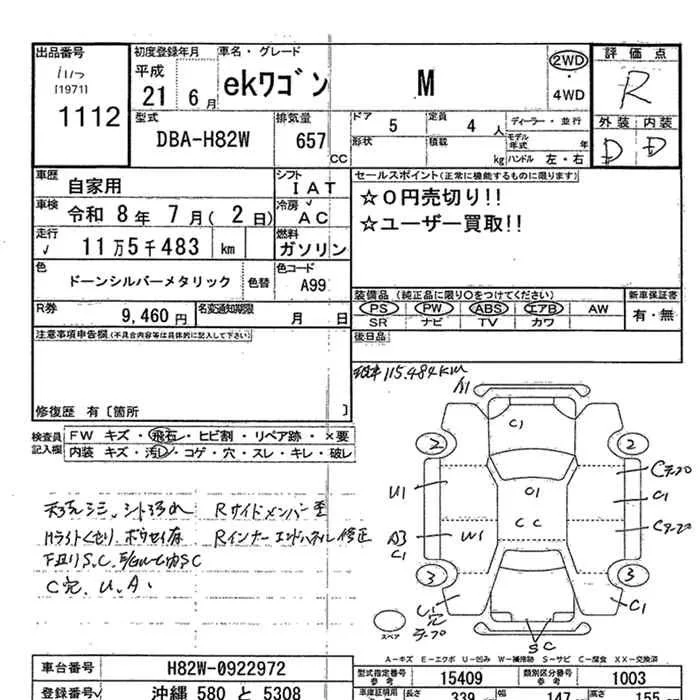 出品番号
[1971]
1112
初度登録年月
平成
21 6月
車名・グレード
ekワゴン M
2WD
・
4WD
評価点
R
外装 内装
D D
型式
DBA-H82W
排気量
657 CC
ドア 5
定員 4 人
ディーラー・並行
形状
積載 kg
モデル年式 年
ハンドル 左・右
車歴 自家用
シフト IAT
車検 令和 8年 7月( 2日)
冷房 AC
走行 11万5千483 km
燃料 ガソリン
色 ドーンシルバーメタリック 色替
色コード A99
R券 9,460円
名変通知期限 月 日
セールスポイント(正常に機能するものに限ります)
☆0円売切り!!
☆ユーザー買取!!
装備品(純正品に限り○をつけてください)
PS PW ABS エアB AW
SR ナビ TV カワ
新車保証書
有・無
後日品
注意事項申告欄(不具合内容等は具体的に記入して下さい)
修復歴 有〔箇所 〕
検査員記入欄
FW キズ・飛石・ヒビ割・リペア跡・×要
内装 キズ・汚レ・コゲ・穴・スレ・キレ・破レ
115.484KM
A1
C1
2 2
U1
C1
C C
W1
C1
C1
3 3
C1
スペア
SC
Rサイドメンバー歪
Rインナーエンドパネル修正
C穴.U.A.
A-キズ E-エクボ U-凹み W-補修跡 S-サビ C-腐食 XX-交換済
車台番号 H82W-0922972
登録番号 沖縄 580 と 5308
型式指定番号参考 15409
類別区分番号参考 1003
長さ 339
幅 147
高さ 155